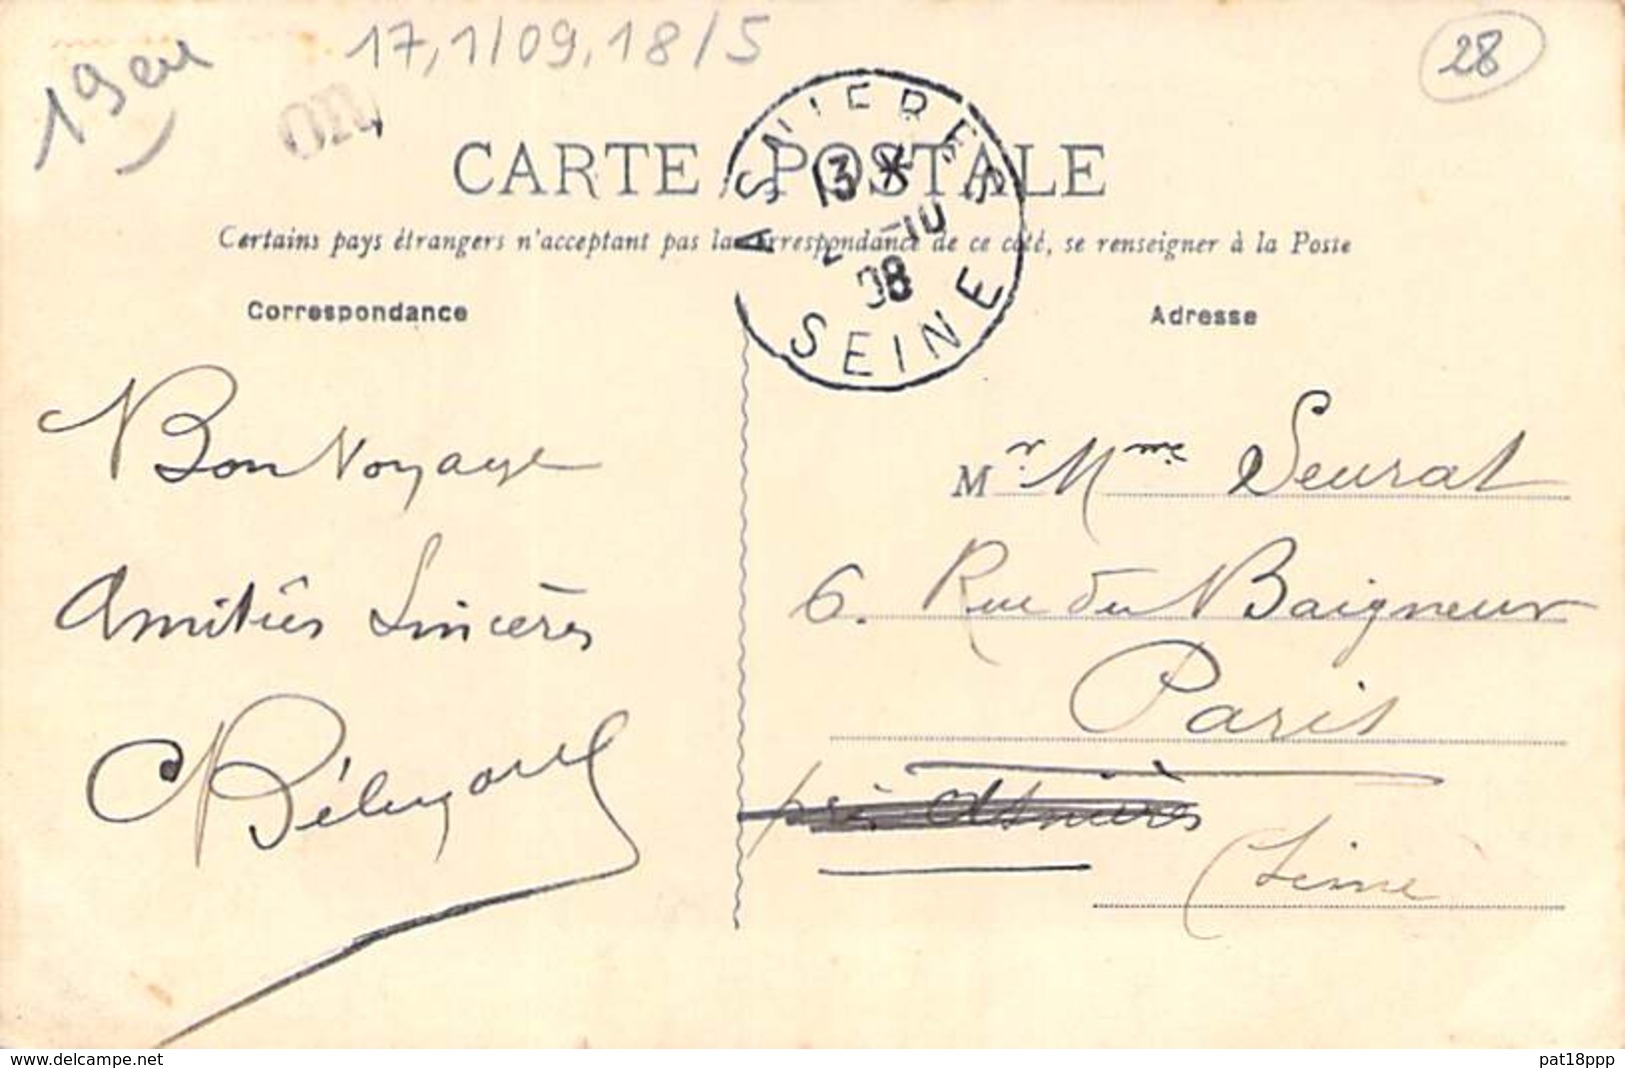 17,1/09,18/5
28
19 eu
OR
CARTE POSTALE
ASNIERES
13 *
2 -10
08
SEINE
Certains pays étrangers n'acceptant pas la correspondance de ce côté, se renseigner à la Poste
Correspondance
Adresse
Bon Voyage
Amitiés Sincères
Mr Mme Seurat
6. Rue du Baigneur
Paris
près Asnières
Seine
www.delcampe.net
pat18ppp